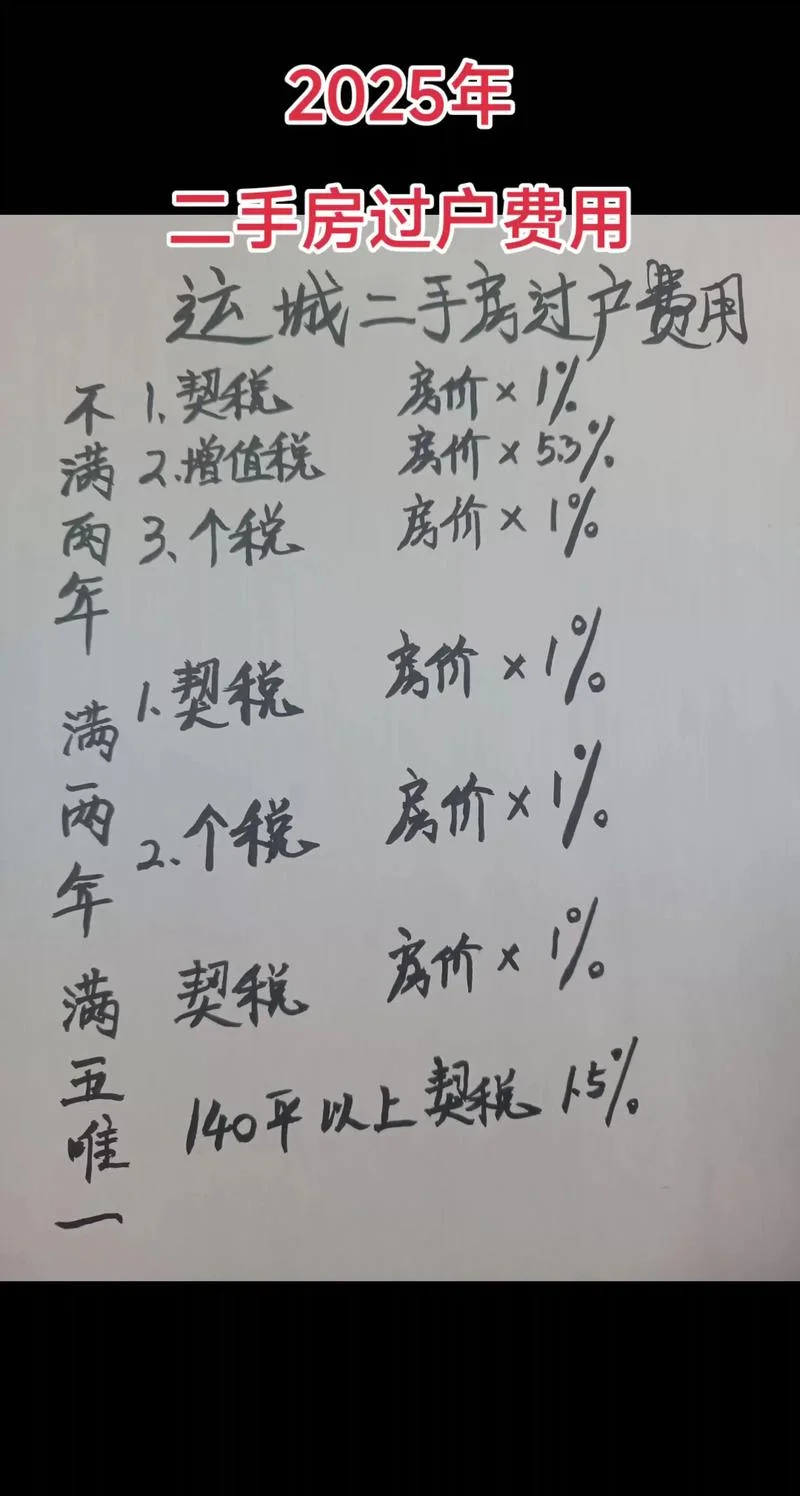 2025年
二手房过户费用
运城二手房过户费用
不满两年
1.契税 房价×1%
2.增值税 房价×5.3%
3、个税 房价×1%
满两年
1.契税 房价×1%
2.个税 房价×1%
满五唯一
契税 房价×1%
140平以上契税 1.5%